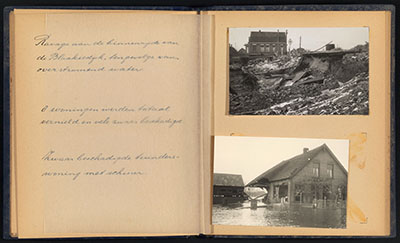 Ravage aan de binnenzijde van
de Blankerdijk, tengevolge van
overstromend water.
6 woningen werden totaal
vernield en vele zwaar beschadigd.
Zwaar beschadigde
woning met schuur.